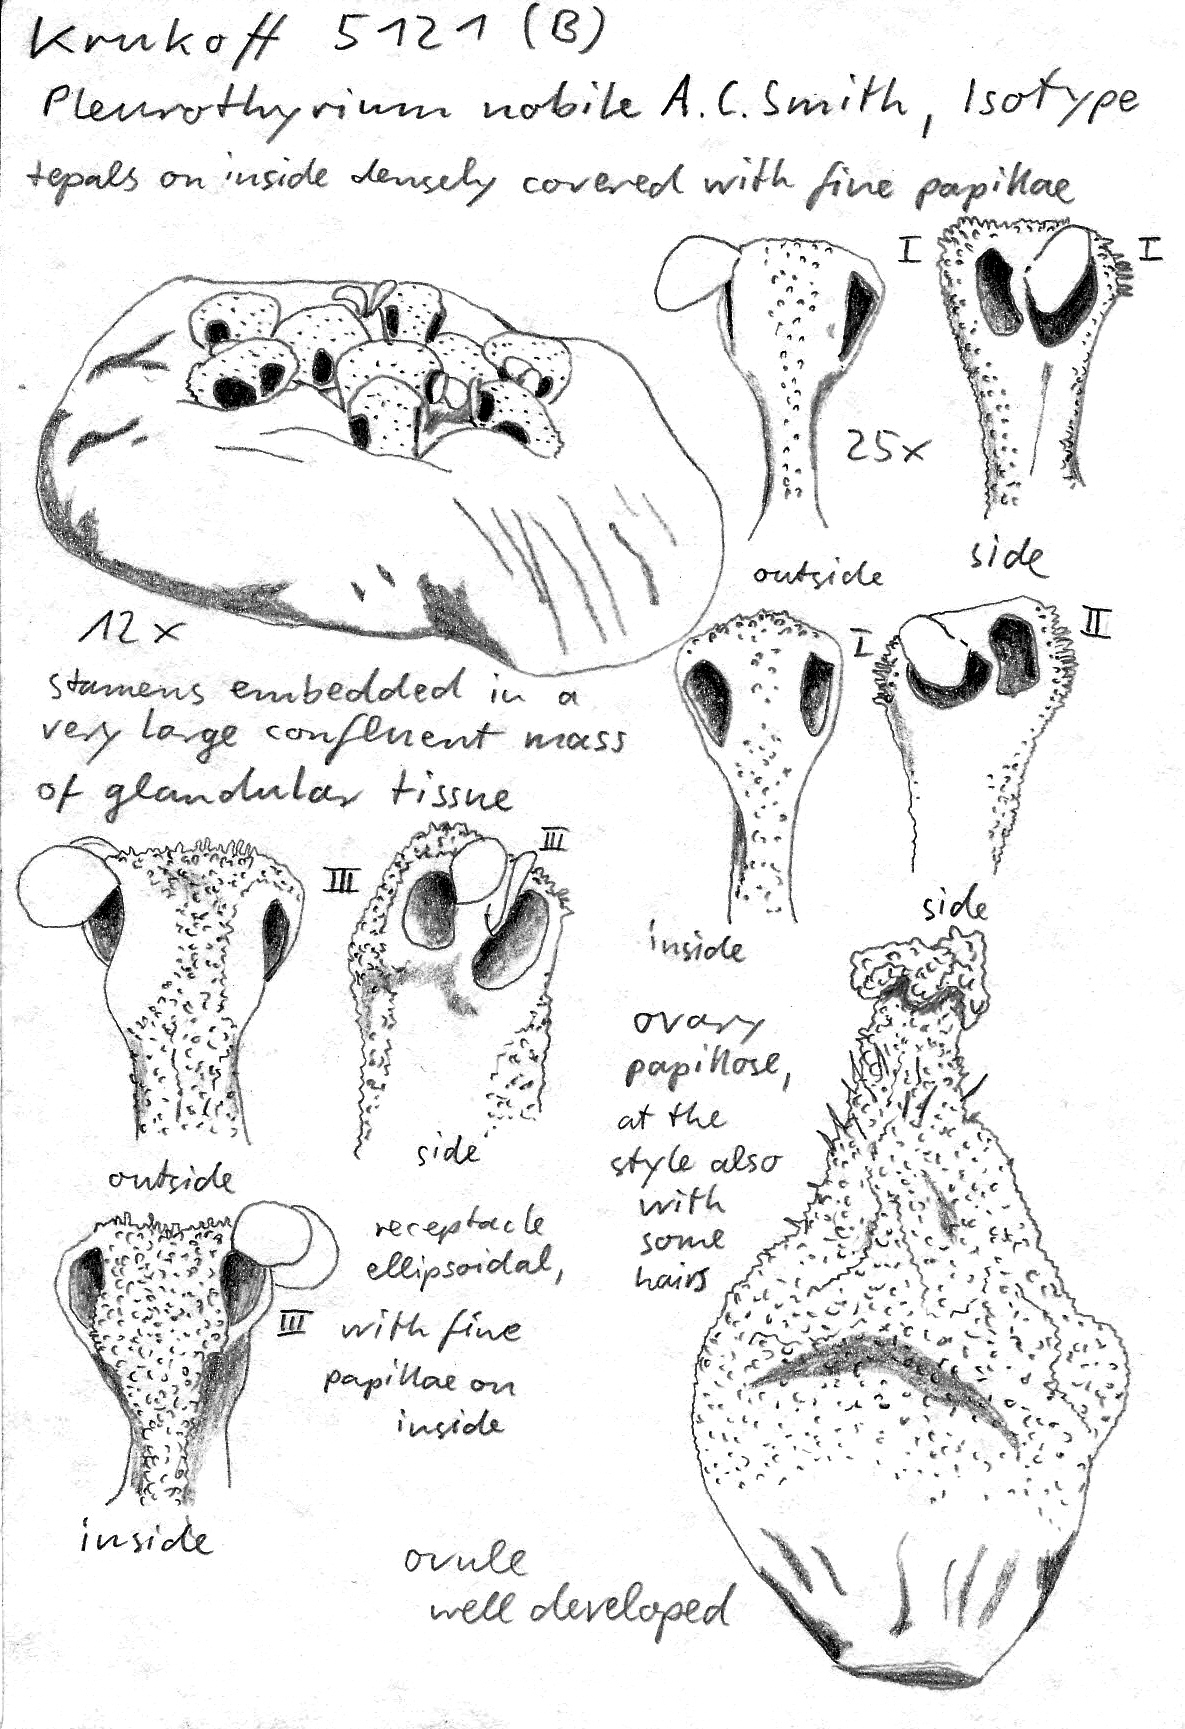 Krukoff 5121 (B)
Pleurothyrium nobile A.C. Smith, Isotype
tepals on inside densely covered with fine papillae
I
I
25x
outside
side
12x
stamens embedded in a
very large confluent mass
of glandular tissue
I
II
inside
side
III
III
outside
side
ovary
papillose,
at the
style also
with
some
hairs
receptacle
ellipsoidal,
with fine
papillae on
inside
III
inside
ovule
well developed